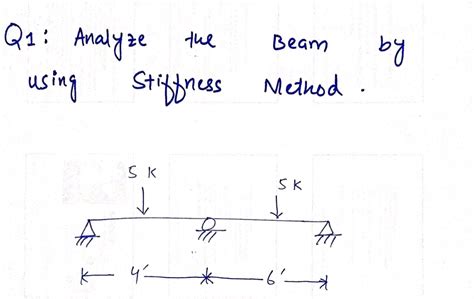 Q1: Analyze the Beam by
using Stiffness Method.
5 K
5 K
4' 6'